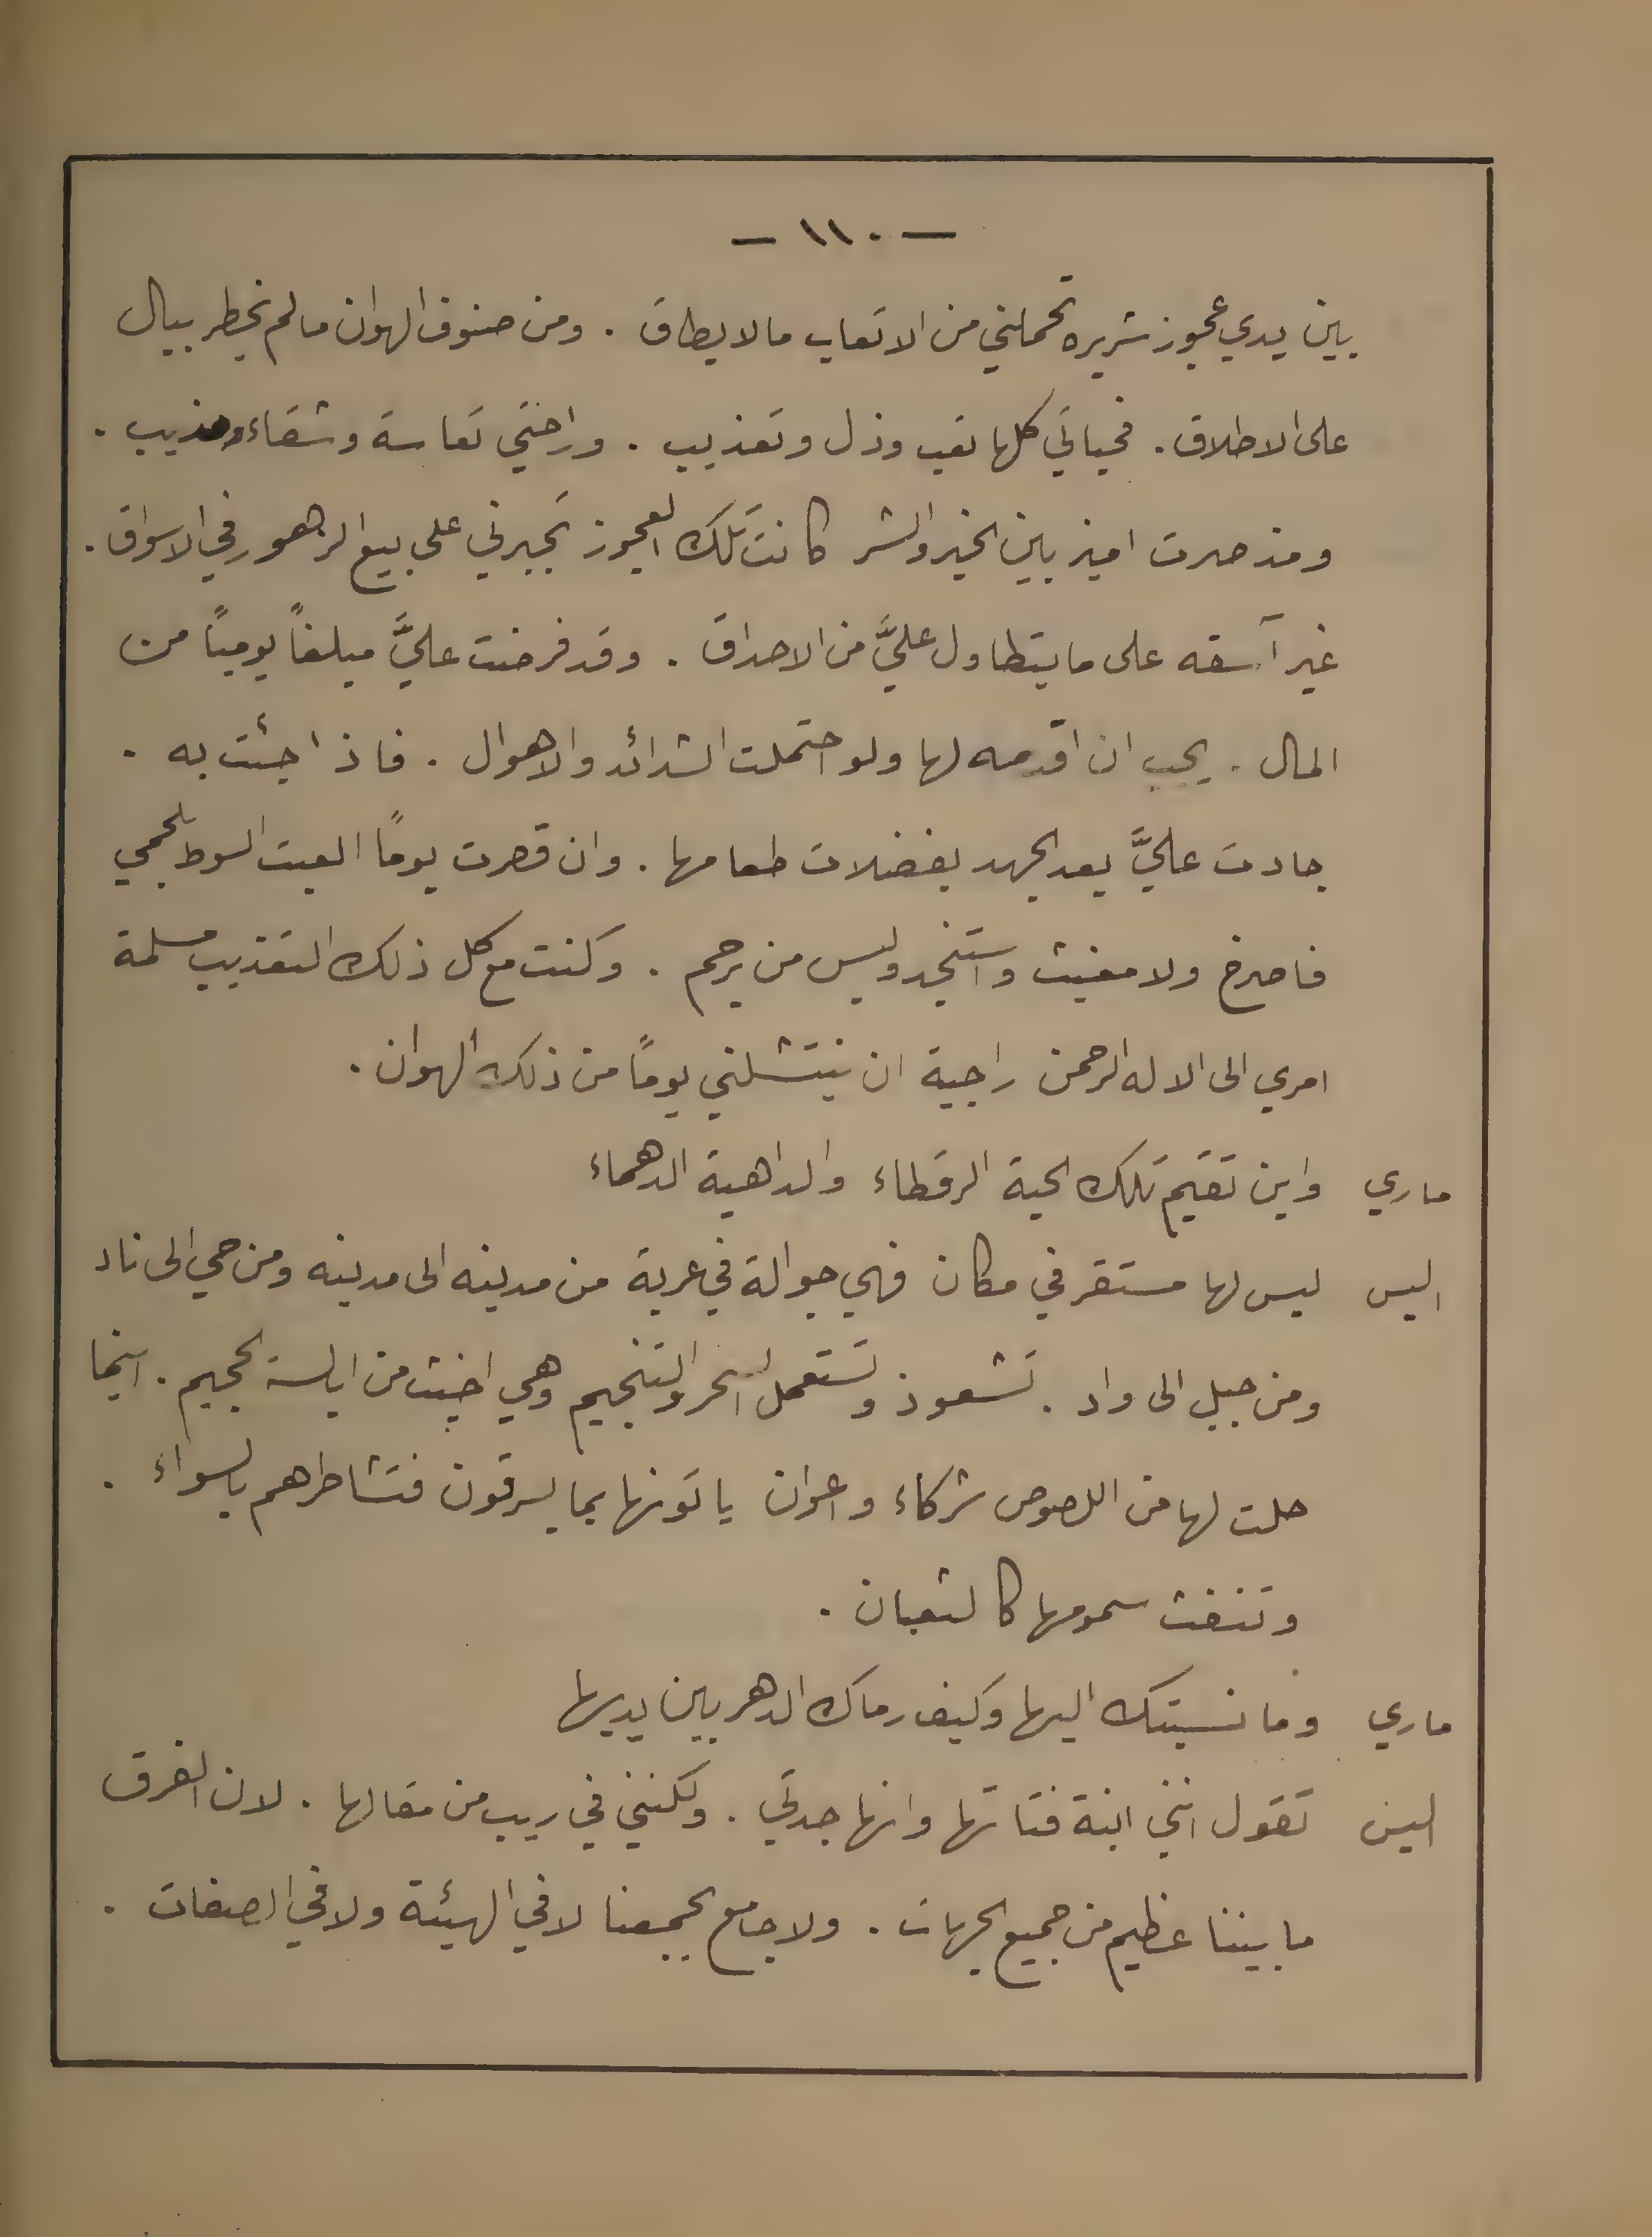 — ١١٠ —
بين يدي عجوز شريره تحملني من الاتعاب مالا يطاق . ومن صنوف الهوان مالم يخطر ببال
على الاطلاق . فحياتي كلها تعب وذل وتعذيب . وراحتي تعاسة وشقاء
ومذ صرت اميز بين الخير والشر كانت تلك العجوز تجبرني على بيع الزهور في الاسواق .
غير آسفه على ما يتطاول عليَّ من الاحداق . وقد فرضت عليَّ مبلغاً يومياً من
المال . يجب ان اقدمه لها ولو احتملت الشدائد والاهوال . فاذا جئت به .
جادت عليَّ بعد الجهد بفضلات طعامها . وان قصرت يوماً العبت السوط بلحمي
فاصرخ ولا مغيث واستنجد وليس من يرحم . وكنت مع كل ذلك التعذيب مسلمة
امري الى الاله الرحمن راجية ان ينتشلني يوماً من ذلك الهوان .
ماري واين تقيم تلك الحية الرقطاء والداهية الدهماء
اليس ليس لها مستقر في مكان فهي جوالة في عربة من مدينه الى مدينه ومن حي الى ناد
ومن جبل الى واد . تشعوذ وتستعمل السحر والتنجيم وهي اخبث من ابالسة الجحيم . اينما
حلت لها من اللصوص شركاء واعوان ياتونها بما يسرقون فتشاطرهم بالسواء .
وتنفث سمومها كالثعبان .
ماري وما نسبتك اليها وكيف رماك الدهر بين يديها
اليس تقول انني ابنة فتاتها وانها جدتي . ولكنني في ريب من مقالها . لان الفرق
ما بيننا عظيم من جميع الجهات . ولا جامع يجمعنا لا في الهيئة ولا في الصفات .